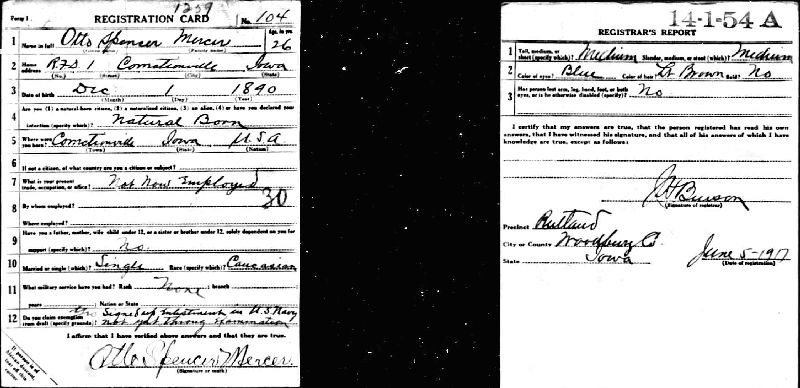 Form 1
1259
REGISTRATION CARD
No. 104
1 Name in full Otto Spencer Mercer Age, in yrs 26
(Given name) (Family name)
2 Home address RFD 1 Correctionville Iowa
(No.) (Street) (City) (State)
3 Date of birth Dec 1 1890
(Month) (Day) (Year)
4 Are you (1) a natural-born citizen, (2) a naturalized citizen, (3) an alien, (4) or have you declared your
intention (specify which)? Natural Born
5 Where were you born? Correctionville Iowa USA
(Town) (State) (Nation)
6 If not a citizen, of what country are you a citizen or subject?
7 What is your present trade, occupation, or office? Not Now Employed
30
8 By whom employed?
Where employed?
9 Have you a father, mother, wife, child under 12, or a sister or brother under 12, solely dependent on you for
support (specify which)? No
10 Married or single (which)? Single Race (specify which)? Caucasian
11 What military service have you had? Rank None ; branch
years ; Nation or State
12 Do you claim exemption from draft (specify grounds)? Signed up Enlistment in U.S Navy
not yet throug examination
I affirm that I have verified above answers and that they are true.
Otto Spencer Mercer
(Signature or mark)
If person is of African descent, tear off this corner
14-1-54 A
REGISTRAR'S REPORT
1 Tall, medium, or short (specify which)? Medium Slender, medium, or stout (which)? Medium
2 Color of eyes? Blue Color of hair? Lt Brown Bald? No
3 Has person lost arm, leg, hand, foot, or both
eyes, or is he otherwise disabled (specify)? No
I certify that my answers are true, that the person registered has read his own
answers, that I have witnessed his signature, and that all of his answers of which I have
knowledge are true, except as follows:
(Signature of registrar)
Precinct Rutland
City or County Woodbury Co.
State Iowa
June 5-1917
(Date of registration)